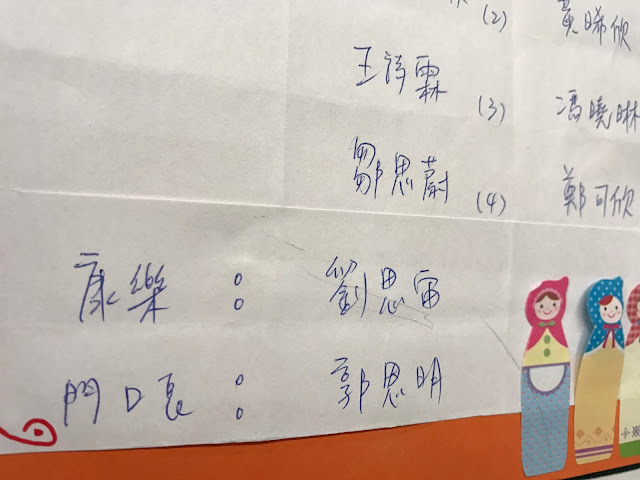 (2) 黃晞欣
王詩霖
(3) 馮曉琳
鄒思蔚
(4) 鄭可欣
康樂 : 劉思雷
門口長 : 郭思明